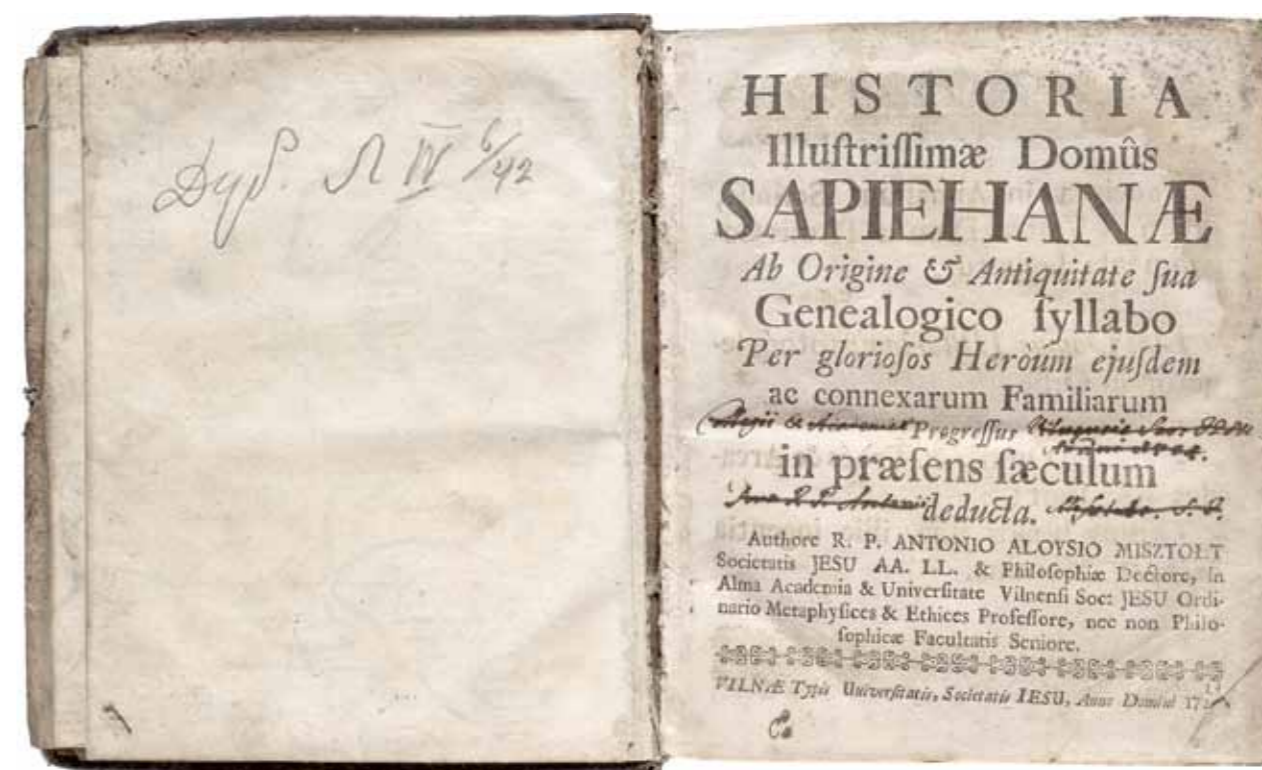 Дуб. Л IV 6/42
HISTORIA
Illuſtriſſimæ Domûs
SAPIEHANÆ
Ab Origine & Antiquitate ſua
Genealogico ſyllabo
Per glorioſos Heròum ejuſdem
ac connexarum Familiarum
Collegii & Academiæ Progreſſus
in præſens ſæculum
deducta.
Authore R. P. ANTONIO ALOYSIO MISZTOŁT
Societatis JESU AA. LL. & Philoſophiæ Doctore, in
Alma Academia & Univerſitate Vilnenſi Soc: JESU Ordi-
nario Metaphyſices & Ethices Profeſſore, nec non Philo-
ſophicæ Facultatis Seniore.
VILNÆ Typis Univerſitatis, Societatis IESU, Anno Domini 172